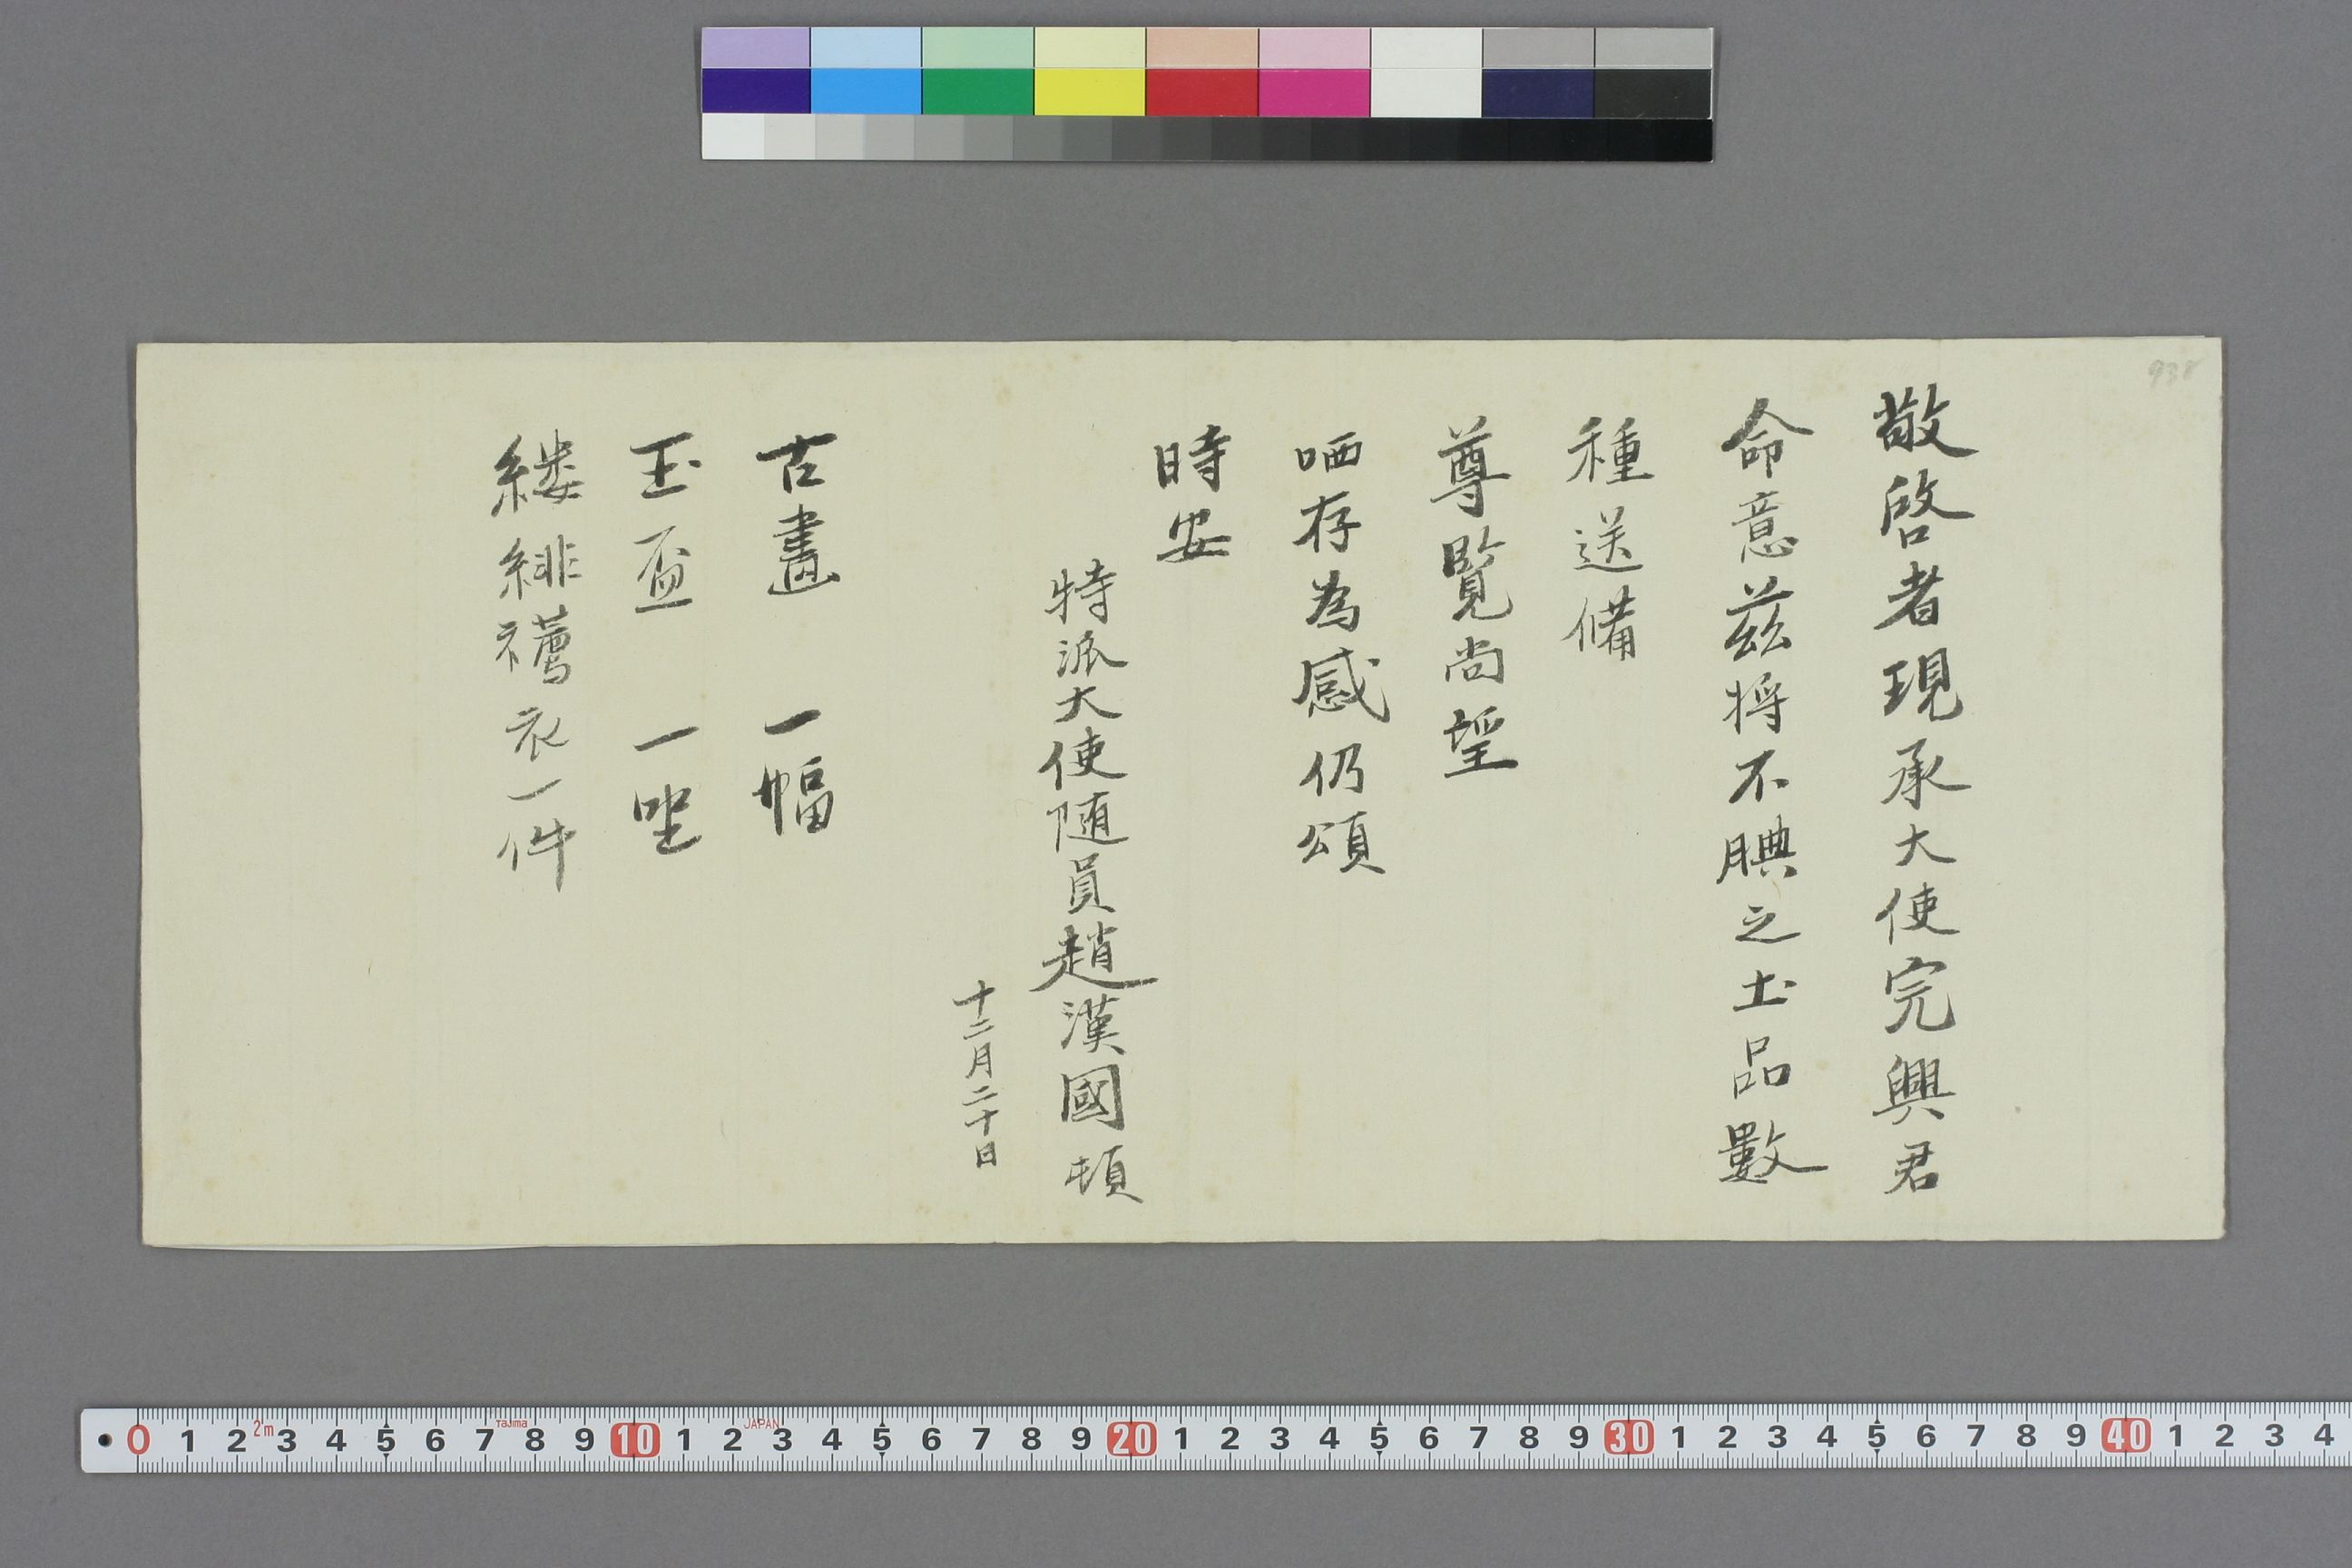 敬啓者現承大使完興君
命意茲将不腆之土品數
種送備
尊覧尚望
哂存為感仍頌
時安
特派大使随員趙漢國頓
十二月二十日
古畫 一幅
玉盃 一坐
緋衣一件
938
0 1 2 3 4 5 6 7 8 9 10 1 2 3 4 5 6 7 8 9 20 1 2 3 4 5 6 7 8 9 30 1 2 3 4 5 6 7 8 9 40 1 2 3 4
2m Tajima JAPAN